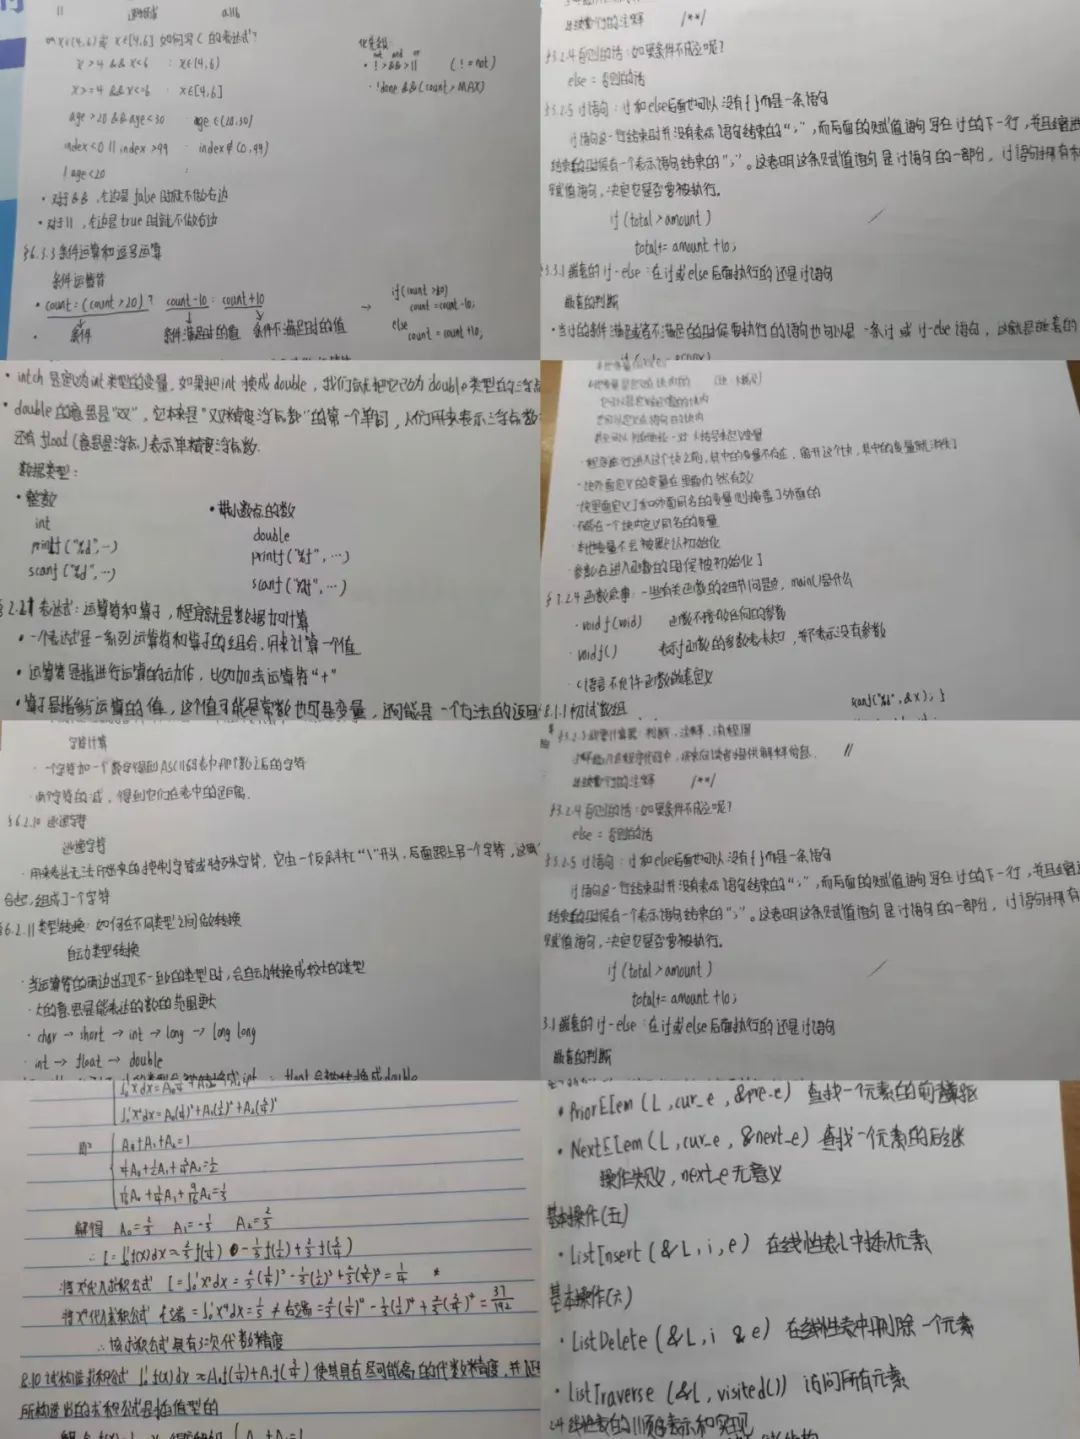 || 逻辑或 a||b
x∈(4,6)或 x∈[4,6] 如何写C的表达式?
x>4 && x<6 : x∈(4,6)
x>=4 && x<=6 : x∈[4,6]
age>20 && age<30 : age∈(20,30)
index<0 || index>99 : index∉(0,99)
! age<20
·对于&&,左边是false时就不做右边
·对于||,左边是true时就不做右边
优先级:
not and or
·!>&&>|| (!=not)
·!done && (count>MAX)
§6.3.3 条件运算和逗号运算
条件运算符
·count=(count>20)? count-10 : count+10
条件 条件满足时的值 条件不满足时的值
→ if(count>20)
count=count-10;
else
count=count+10;
/**/
§3.2.4 否则的话:如果条件不成立呢?
else=否则的话
§3.2.5 if语句:if和else后面也可以没有{}而是一条语句
if语句这一行结束时并没有表示语句结束的“;”,而后面的赋值语句写在if的下一行,并且缩进
结束的时候有一个表示语句结束的“;”。这表明这条赋值语句是if语句的一部分,if语句拥有和
赋值语句,决定它是否要被执行。
if(total>amount)
total+=amount+10;
§3.3.1 嵌套的if-else:在if或else后面执行的还是if语句
嵌套的判断
·当if的条件满足或者不满足的时候要执行的语句也可以是一条if或if-else语句,这就是嵌套的
·intch是定义为int类型的变量,如果把int换成double,我们就把它改为double类型的浮点
·double的意思是“双”,它本来是“双精度浮点数”的第一个单词,人们用来表示浮点数
还有float(意思是浮点)表示单精度浮点数.
数据类型:
·整数
int
printf("%d",…)
scanf("%d",…)
·带小数点的数
double
printf("%f",…)
scanf("%lf",…)
表达式:运算符和算子,程序就是数据加计算
·一个表达式是一系列运算符和算子的组合,用来计算一个值
·运算符是指进行运算的动作,比如加法运算符“+”
·算子是指参与运算的值,这个值可能是常数也可是变量,还可能是一个方法的返回
·程序运行进入这个块之前,其中的变量不存在,离开这个块,其中的变量就消失了
·块外面定义的变量在里面仍然有效
·块里面定义了和外面同名的变量则掩盖了外面的
·不能在一个块内定义同名的变量
·本地变量不会被默认初始化
·参数在进入函数的时候被初始化了
§7.2.4 函数庶事:一些有关函数的细节问题,main()是什么
·void f(void) 函数不接收任何的参数
·void f() 表示f函数的参数表未知,并不表示没有参数
·C语言不允许函数嵌套定义
scanf("%d",&x); }
8.1.1 初试数组
字符计算
·一个字符加一个数字得到ASCII码表中那个数之后的字符
·两个字符的减,得到它们在表中的距离.
§6.2.10 逃逸字符
逃逸字符
·用来表达无法印出来的控制字符或特殊字符,它由一个反斜杠“\”开头,后面跟上另一个字符,这两
合起,组成了一个字符
§6.2.11 类型转换:如何在不同类型之间做转换
自动类型转换
·当运算符的两边出现不一致的类型时,会自动转换成较大的类型
·大的意思是能表达的数的范围更大
·char → short → int → long → long long
·int → float → double
§3.2.3 判断,注释,流程图
注释插入在程序代码中,用来向读者提供解释信息. //
/**/
§3.2.4 否则的话:如果条件不成立呢?
else=否则的话
§3.2.5 if语句:if和else后面也可以没有{}而是一条语句
if语句这一行结束时并没有表示语句结束的“;”,而后面的赋值语句写在if的下一行,并且缩进
结束的时候有一个表示语句结束的“;”。这表明这条赋值语句是if语句的一部分,if语句拥有
赋值语句,决定它是否要被执行。
if(total>amount)
total+=amount+10;
3.1 嵌套的if-else:在if或else后面执行的还是if语句
嵌套的判断
∫₀¹x⁴dx=A₀(¼)⁴+A₁(½)⁴+A₂(¾)⁴
即 A₀+A₁+A₂=1
¼A₀+½A₁+¾A₂=½
1/16A₀+¼A₁+9/16A₂=⅓
解得 A₀=⅔ A₁=-⅓ A₂=⅔
∴ I=∫₀¹f(x)dx≈⅔f(¼)-⅓f(½)+⅔f(¾)
将x³代入求积公式 I=∫₀¹x³dx=⅔(¼)³-⅓(½)³+⅔(¾)³=¼
将x⁴代入求积公式 左端=∫₀¹x⁴dx=1/5≠右端=⅔(¼)⁴-⅓(½)⁴+⅔(¾)⁴=37/192
∴该求积公式具有3次代数精度
8.10 试构造求积公式 ∫₀¹f(x)dx≈A₀f(¼)+A₁f(¾)使其具有尽可能高的代数精度,并证明
所构造出的求积公式是插值型的
·PriorElem(L,cur_e,&pre_e) 查找一个元素的前驱
·NextElem(L,cur_e,&next_e) 查找一个元素的后继
操作失败,next_e无意义
基本操作(五)
·ListInsert(&L,i,e) 在线性表L中插入元素
基本操作(六)
·ListDelete(&L,i &e) 在线性表中删除一个元素
·listTraverse(&L,visited()) 访问所有元素
2.4 线性表的顺序表示和实现